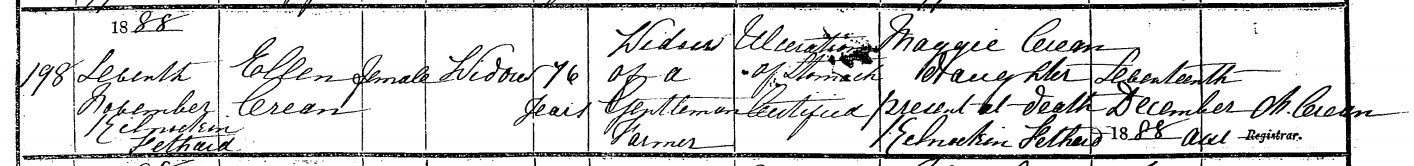 1888
198 Seventh November Kilnockin Fethard
Ellen Crean
female
Widow
76 years
Widow of a Gentleman Farmer
Ulceration of Stomach Certified
Maggie Crean Daughter present at death Kilnockin Fethard
Seventeenth December 1888
Registrar.